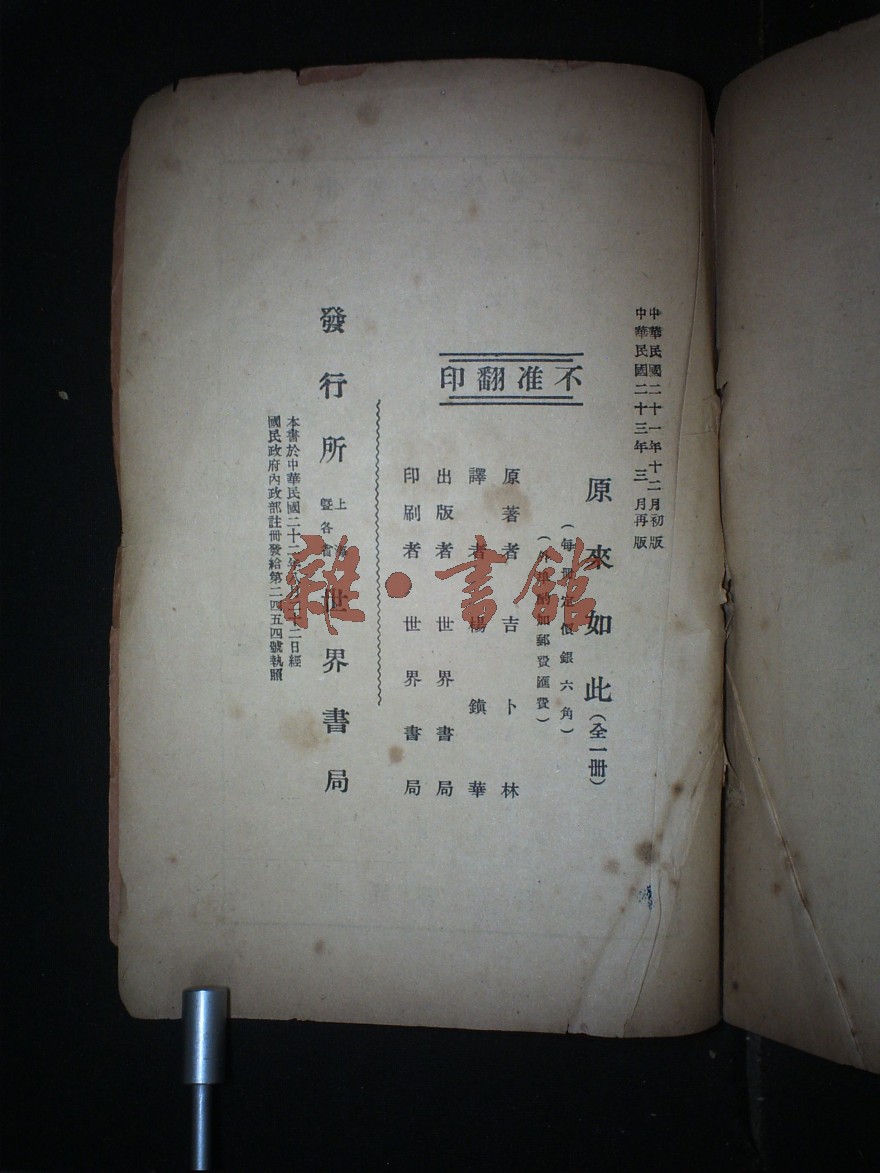 中華民國二十一年十二月初版
中華民國二十三年三月再版
原來如此(全一冊)
(每冊定價銀六角)
(外埠酌加郵費匯費)
不准翻印
原著者 吉卜林
譯者 楊鎮華
出版者 世界書局
印刷者 世界書局
發行所 上海暨各省 世界書局
本書於中華民國二十二年八月二十二日經
國民政府內政部註冊發給第二四五四號執照
雜·書館